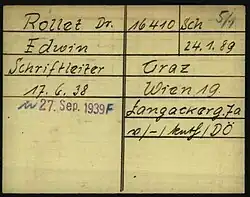 Rollet Dr. 16410 Sch 5/1
Edwin 24.1.89
Schriftleiter Graz
17.6.38 Wien 19
27. Sep. 1939 F Langackerg. 7a
DÖ